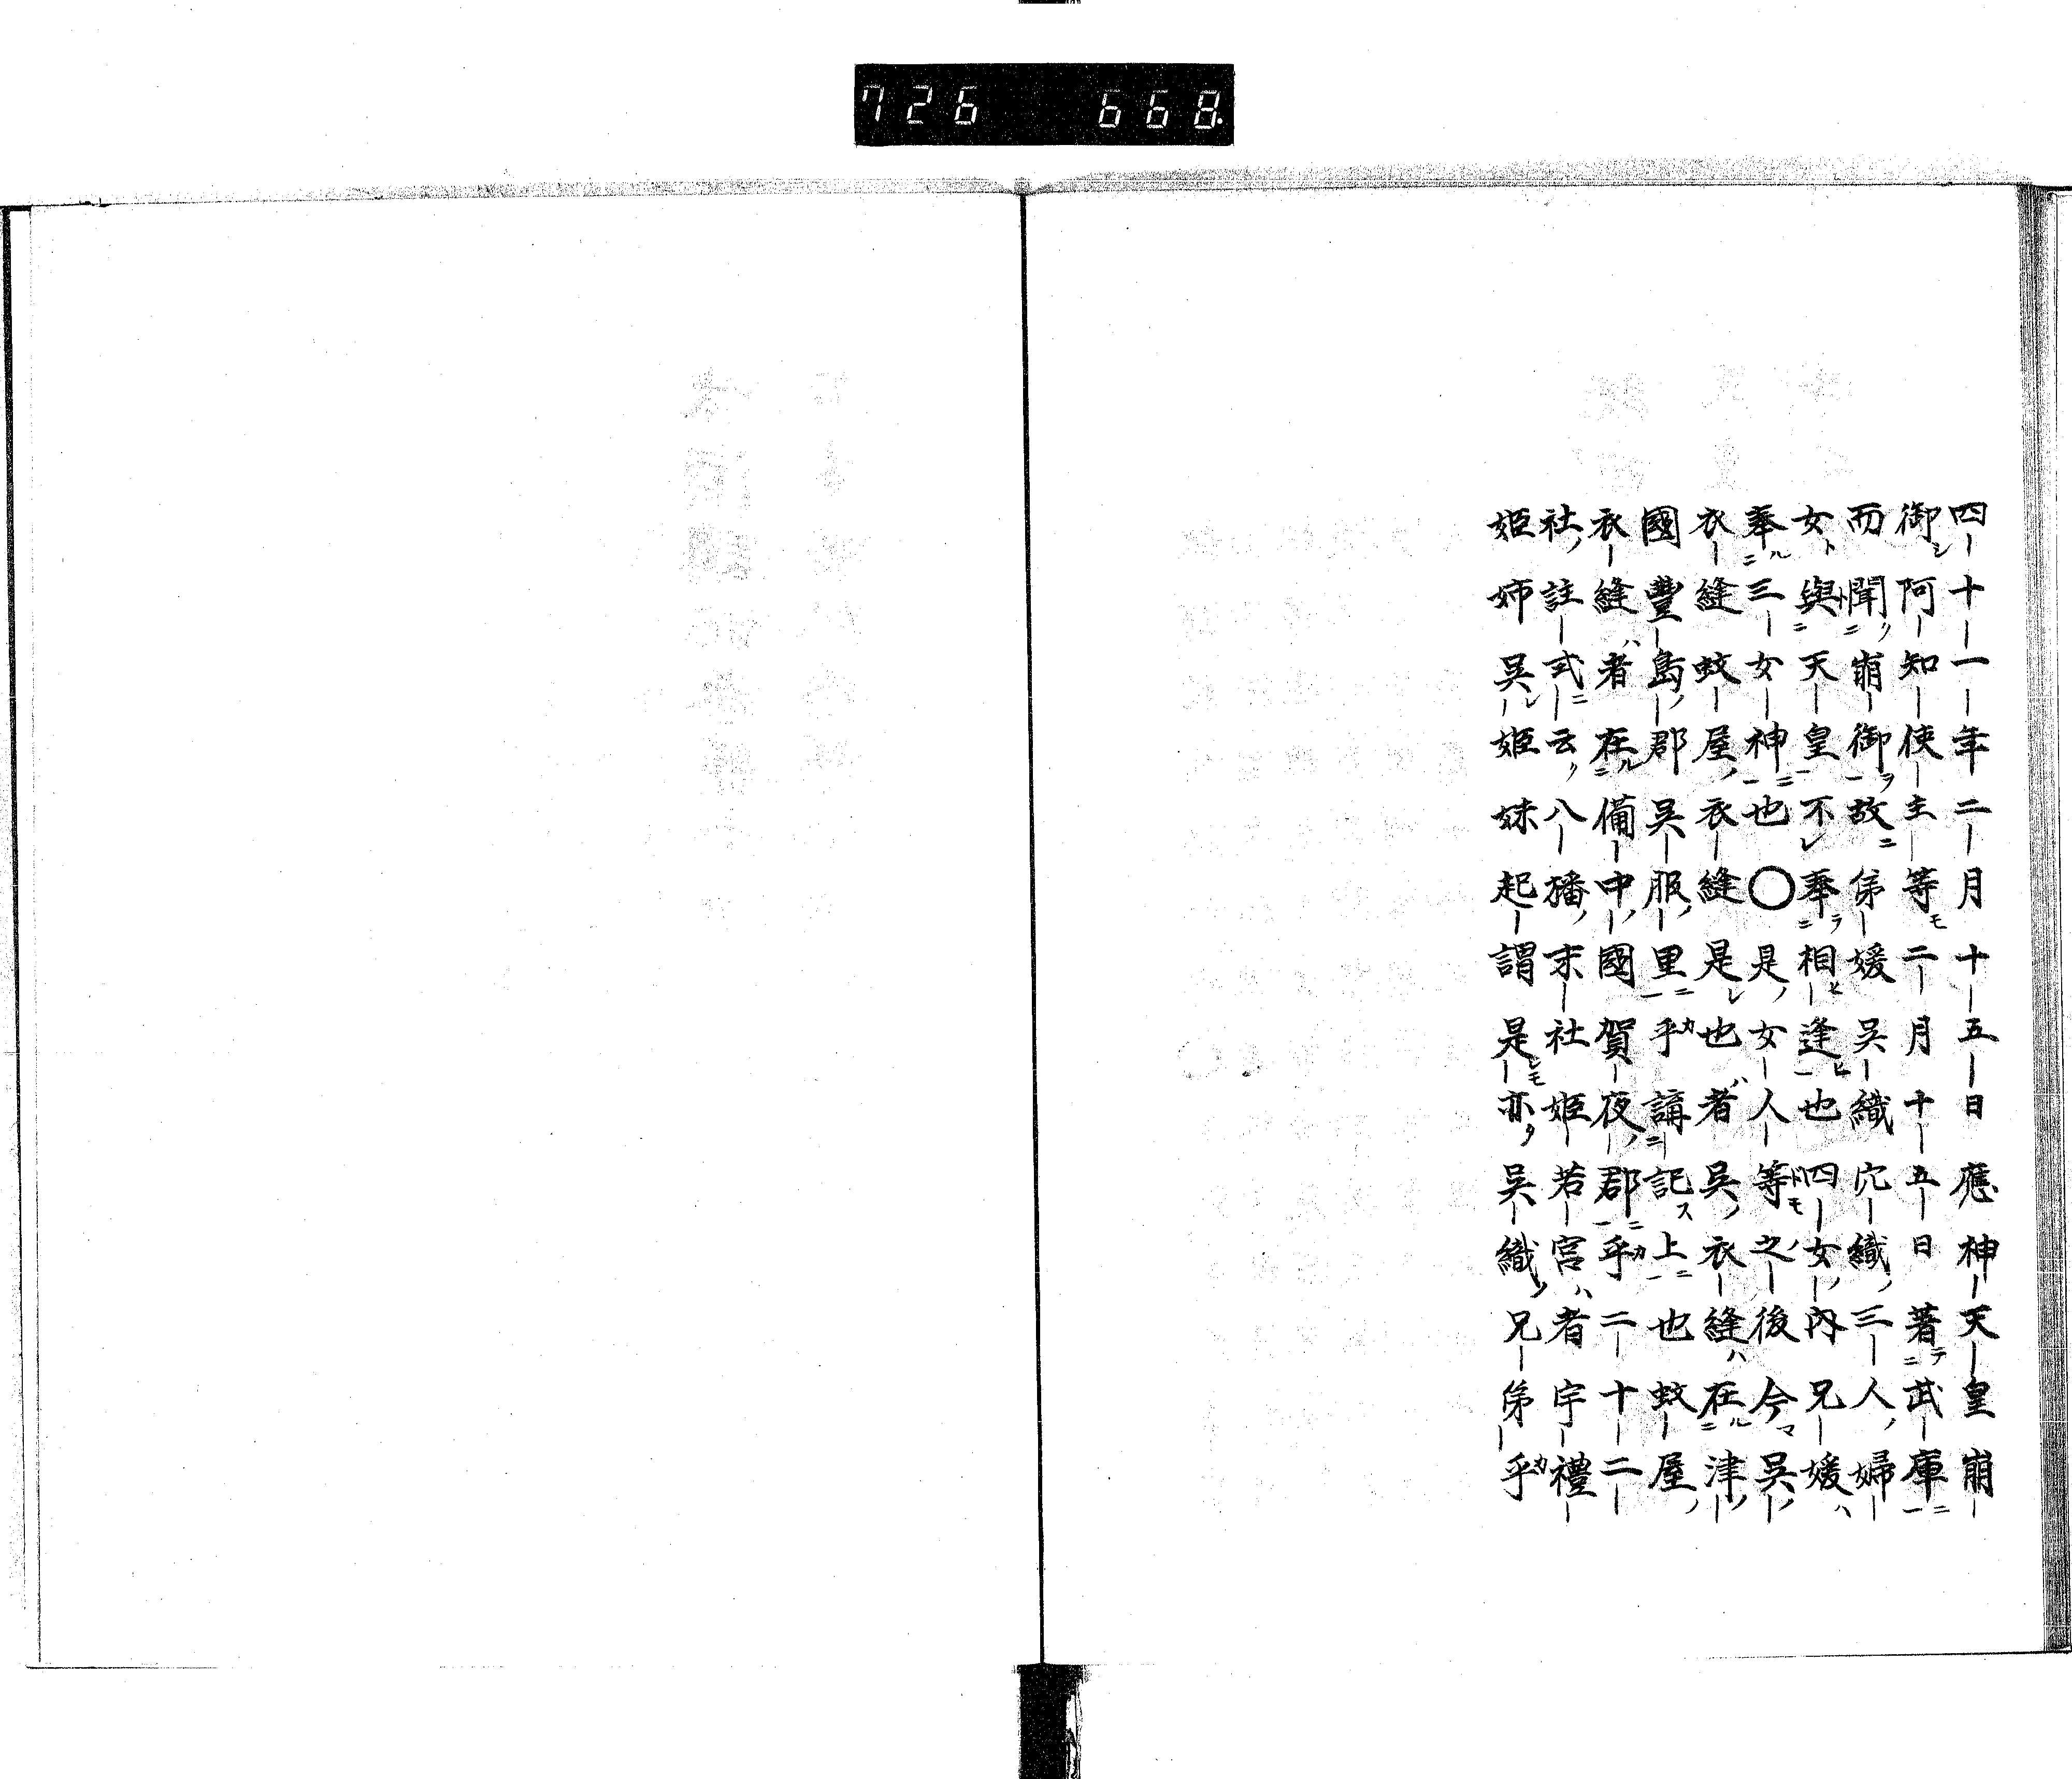 726 668.
四十一年二月十五日應神天皇崩
御シ阿知使主等モ二月十五日著テ武庫ニ
而聞ク崩御ヲ故ニ弟媛呉織穴織ノ三人ノ婦
女ト與天皇不奉ラ相ヒ逢ヒ也四女ノ内兄媛ハ
奉ル三女神ニ也〇是ノ女人等ドモノ之後今マ呉ノ
衣縫蚊屋ノ衣縫是レ也者ハ呉ノ衣縫ハ在ル津ノ
國豐島ノ郡呉服ノ里ニ乎カ講ニ記ス上ニ也蚊屋ノ
衣縫者ハ在ル備中ノ國賀夜ノ郡ニ乎カ二十二
社ノ註式ニ云ク八播ノ末社姫若宮ハ者宇禮
姫姉呉レ姫妹起謂是レモ亦タ呉織ノ兄弟乎カ